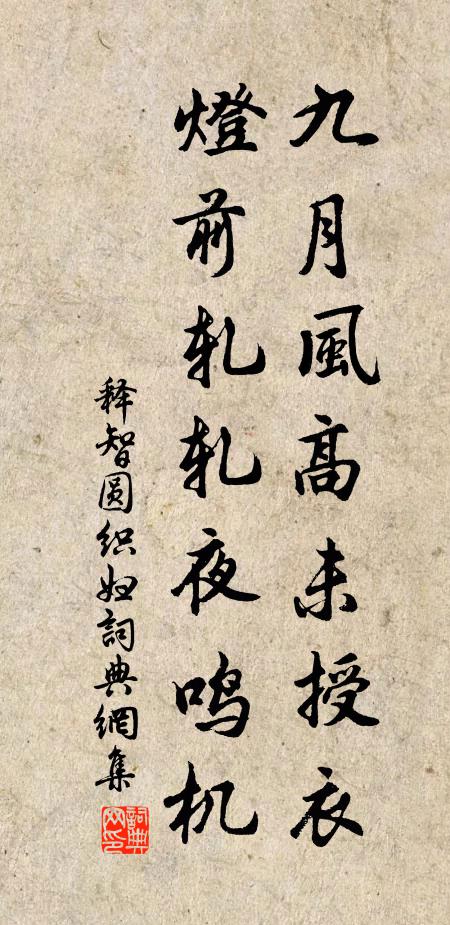 九月風高未授衣
燈前軋軋夜鸣机
释智圆织妇詞典網集
詞典
网印